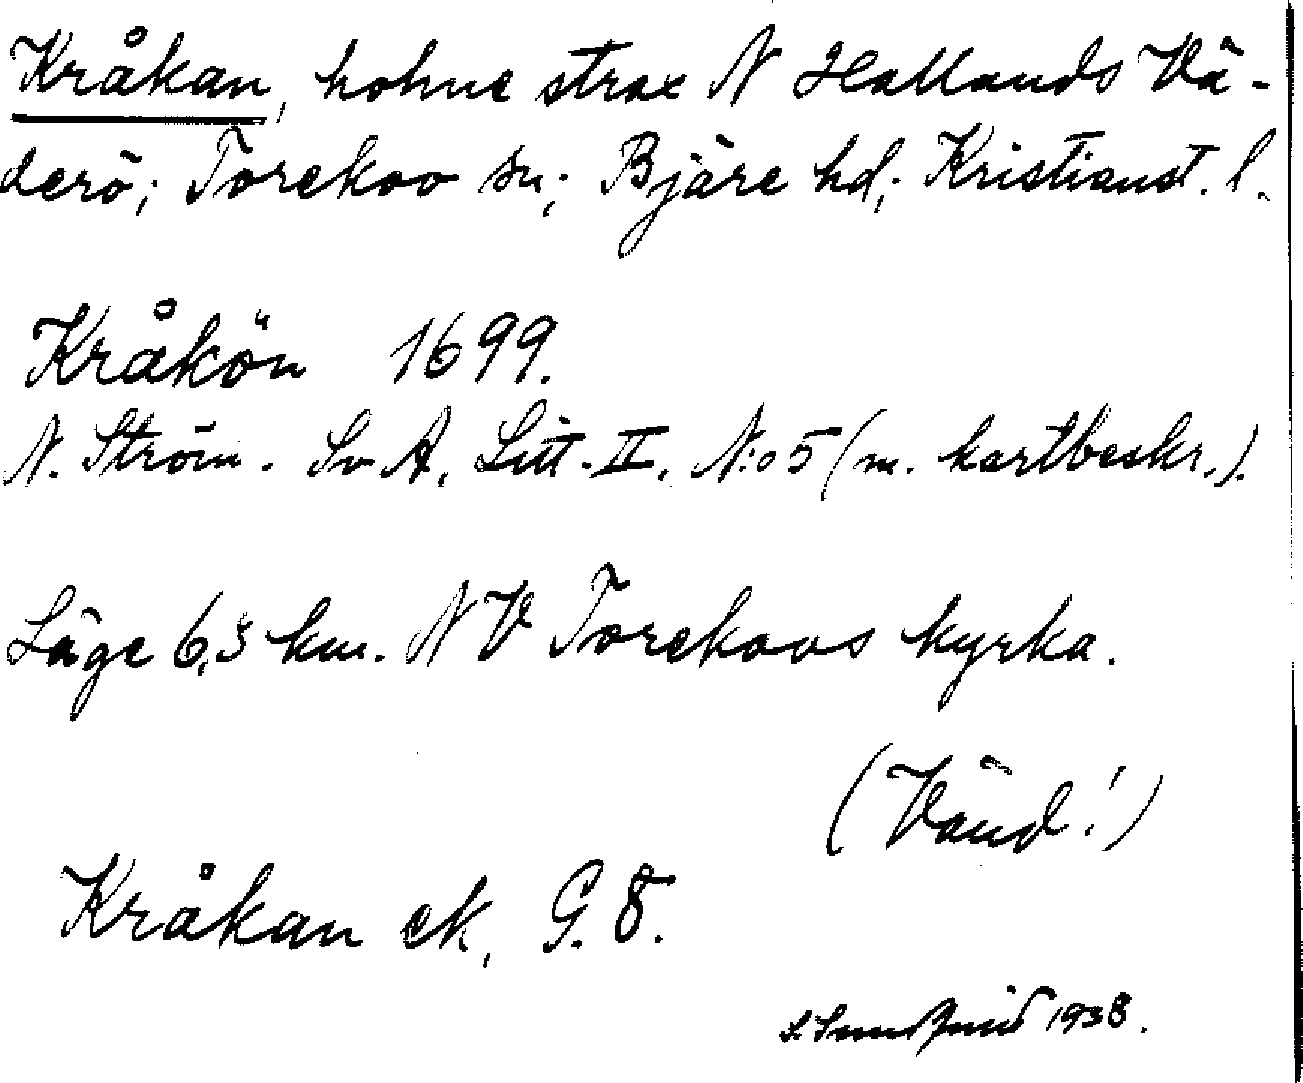 Kråkan, holme strax N Hallands Vä-
derö; Torekov sn; Bjäre hd; Kristianst. l.
Kråkön 1699.
N. Ström. Sv A, Litt. II, N:o 5 (m. kartbeskr.).
Läge 6,5 km. NV Torekovs kyrka.
(Vänd!)
Kråkan ek, G. 8.
1938.